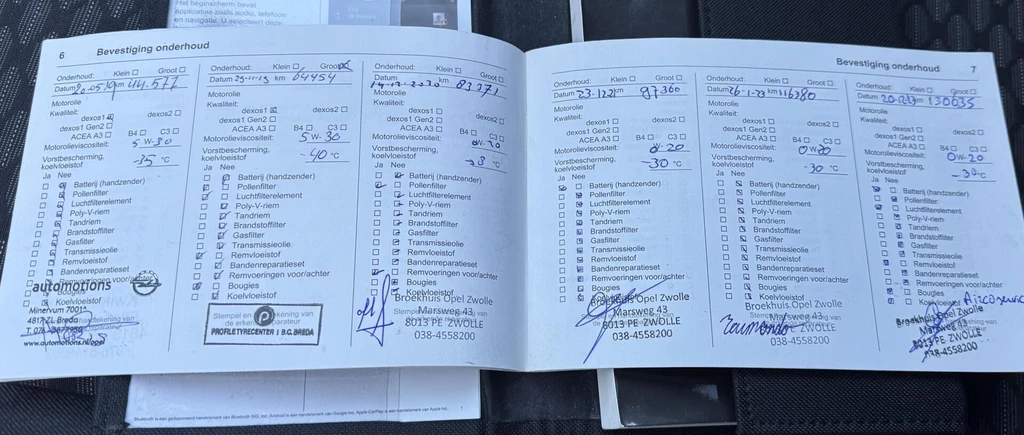 Het beginscherm bevat
applicaties zoals audio, telefoon
en navigatie. U selecteert deze
6 Bevestiging onderhoud
Onderhoud: Klein ☐ Groot ☐
Motorolie
Kwaliteit:
dexos1
dexos2 ☐
dexos1 Gen2 ☐
ACEA A3 ☐ B4 ☐ C3 ☐
Motorolieviscositeit:
5 W-30
Vorstbescherming,
koelvloeistof
-35 °C
Ja Nee
Batterij (handzender)
Pollenfilter
Luchtfilterelement
Poly-V-riem
Tandriem
Brandstoffilter
Gasfilter
Transmissieolie
Remvloeistof
Bandenreparatieset
Remvoeringen voor/achter
Bougies
Koelvloeistof
automotions
Minervum 7001
4817 ZL Breda
www.automotions.nl/opel
Onderhoud: Klein ☐ Groot
Datum 29-11-19 km 64454
Motorolie
Kwaliteit:
dexos1
dexos2 ☐
dexos1 Gen2 ☐
ACEA A3 ☐ B4 ☐ C3 ☐
Motorolieviscositeit:
5 W-30
Vorstbescherming,
koelvloeistof
-40 °C
Ja Nee
Batterij (handzender)
Pollenfilter
Luchtfilterelement
Poly-V-riem
Tandriem
Brandstoffilter
Gasfilter
Transmissieolie
Remvloeistof
Bandenreparatieset
Remvoeringen voor/achter
Bougies
Koelvloeistof
Stempel en
PROFILETYRECENTER | B.C. BREDA
Onderhoud: Klein ☐ Groot ☐
Datum km 83371
Motorolie
Kwaliteit:
dexos1 ☐
dexos2 ☐
dexos1 Gen2 ☐
ACEA A3 ☐ B4 ☐ C3 ☐
Motorolieviscositeit:
Vorstbescherming,
koelvloeistof
Ja Nee
Batterij (handzender)
Pollenfilter
Luchtfilterelement
Poly-V-riem
Tandriem
Brandstoffilter
Gasfilter
Transmissieolie
Remvloeistof
Bandenreparatieset
Remvoeringen voor/achter
Bougies
Koelvloeistof
Broekhuis Opel Zwolle
Marsweg 43
8013 PE ZWOLLE
038-4558200
Bevestiging onderhoud 7
Onderhoud: Klein ☐ Groot ☐
Datum 23-12-21 km 97360
Motorolie
Kwaliteit:
dexos1 ☐
dexos2 ☐
dexos1 Gen2 ☐
ACEA A3 ☐ B4 ☐ C3 ☐
Motorolieviscositeit:
0W-20
Vorstbescherming,
koelvloeistof
-30 °C
Ja Nee
Batterij (handzender)
Pollenfilter
Luchtfilterelement
Poly-V-riem
Tandriem
Brandstoffilter
Gasfilter
Transmissieolie
Remvloeistof
Bandenreparatieset
Remvoeringen voor/achter
Bougies
Koelvloeistof
Broekhuis Opel Zwolle
Marsweg 43
8013 PE ZWOLLE
038-4558200
Onderhoud: Klein ☐ Groot ☐
Datum 26-1-23 km 116380
Motorolie
Kwaliteit:
dexos1 ☐
dexos2 ☐
dexos1 Gen2 ☐
ACEA A3 ☐ B4 ☐ C3 ☐
Motorolieviscositeit:
0W20
Vorstbescherming,
koelvloeistof
-30 °C
Ja Nee
Batterij (handzender)
Pollenfilter
Luchtfilterelement
Poly-V-riem
Tandriem
Brandstoffilter
Gasfilter
Transmissieolie
Remvloeistof
Bandenreparatieset
Remvoeringen voor/achter
Bougies
Koelvloeistof
Broekhuis Opel Zwolle
Marsweg 43
ZWOLLE
038-4558200
Onderhoud: Klein ☐ Groot ☐
130635
Motorolie
Kwaliteit:
dexos1 ☐
dexos2 ☐
dexos1 Gen2 ☐
ACEA A3 ☐ B4 ☐ C3 ☐
Motorolieviscositeit:
0W-20
Vorstbescherming,
koelvloeistof
-30 °C
Ja Nee
Batterij (handzender)
Pollenfilter
Luchtfilterelement
Poly-V-riem
Tandriem
Brandstoffilter
Gasfilter
Transmissieolie
Remvloeistof
Bandenreparatieset
Remvoeringen voor/achter
Bougies
Broekhuis Opel Zwolle
Marsweg 43
8013 PE ZWOLLE
038-4558200